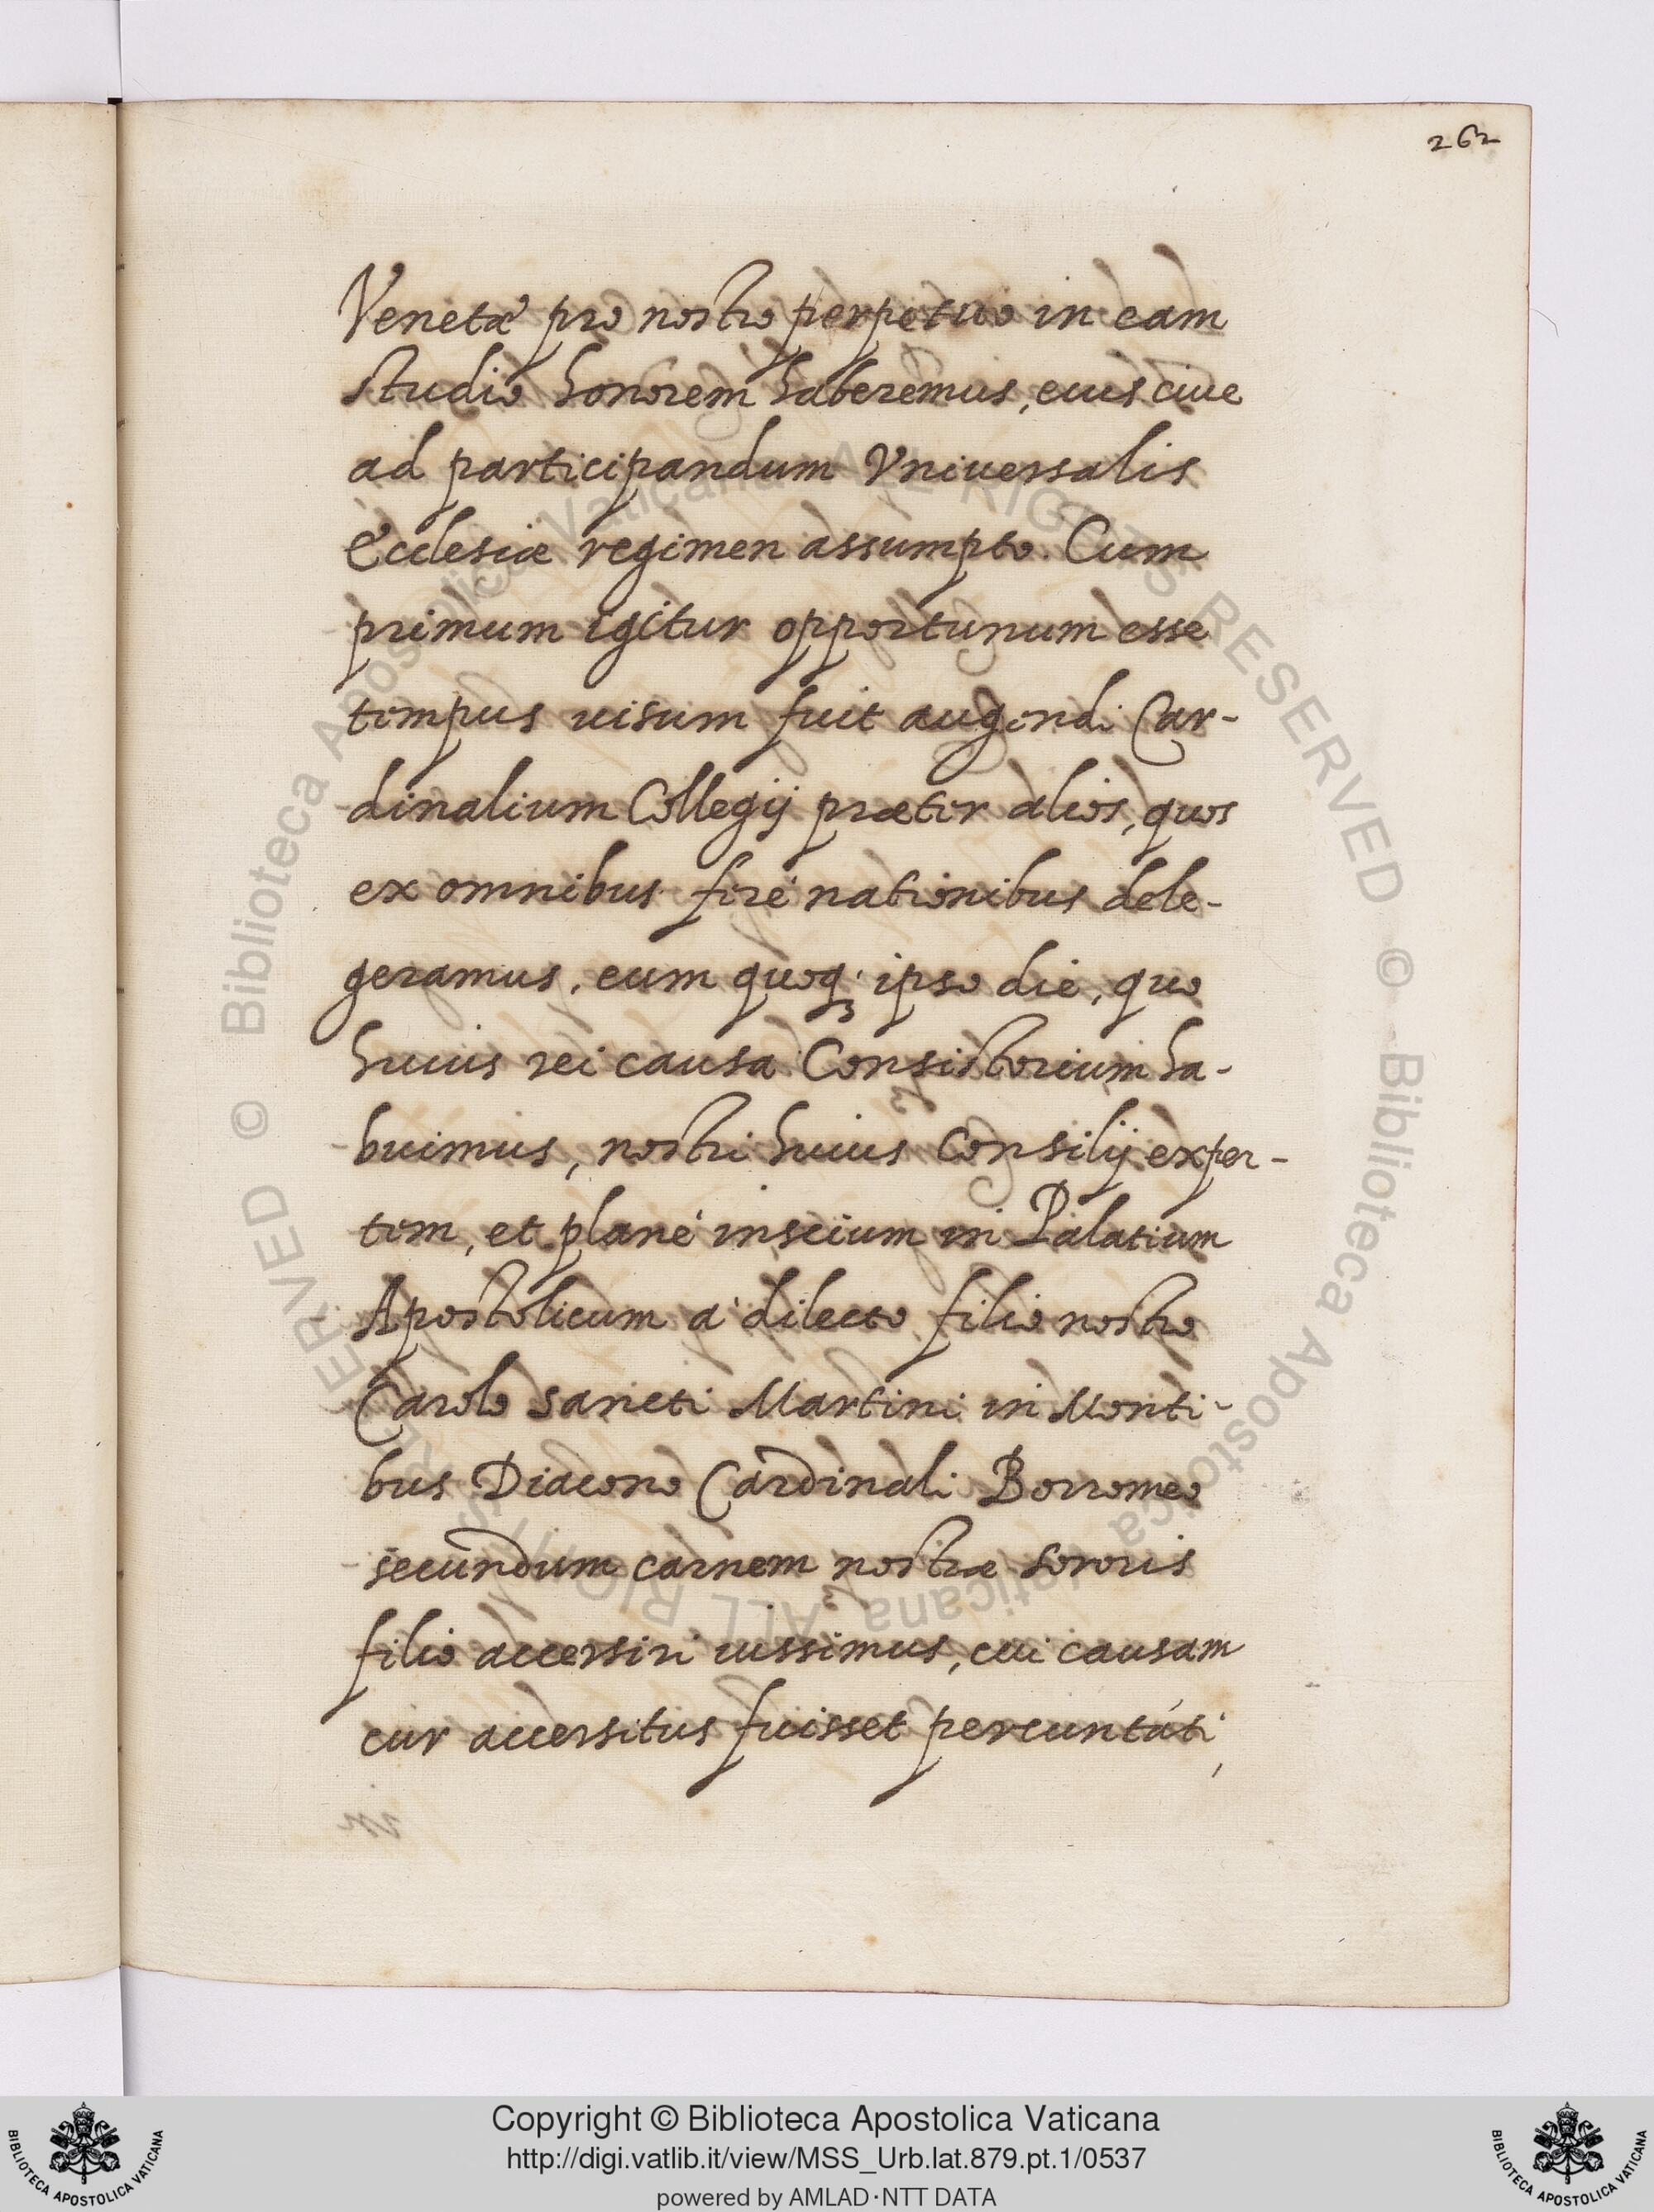 262
Venetæ pro nostro perpetuo in eam
studio honorem haberemus, eius ciue
ad participandum Vniuersalis
Ecclesiæ regimen assumpto. Cum
primum igitur opportunum esse
tempus uisum fuit augendi Car-
dinalium Collegij præter alios, quos
ex omnibus ferè nationibus dele-
geramus, eum quoq; ipso die, quo
huius rei causa Consistorium ha-
buimus, nostri huius Consilij exper-
tem, et planè inscium in Palatium
Apostolicum à dilecto filio nostro
Carolo sancti Martini in Monti-
bus Diacono Cardinali Borromeo
secundum carnem nostræ sororis
filio accersiri iussimus, cui causam
cur accersitus fuisset percuntati,
© Biblioteca Apostolica Vaticana ALL RIGHTS RESERVED © Biblioteca Apostolica Vaticana ALL RIGHTS RESERVED
Copyright © Biblioteca Apostolica Vaticana
http://digi.vatlib.it/view/MSS_Urb.lat.879.pt.1/0537
powered by AMLAD·NTT DATA
BIBLIOTECA APOSTOLICA VATICANA
BIBLIOTECA APOSTOLICA VATICANA